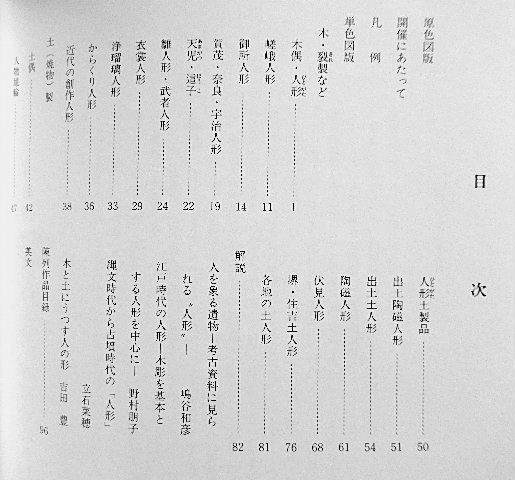 目次
原色図版
開催にあたって
凡例
単色図版
木・裂製など
木偶・人形 1
嵯峨人形 11
御所人形 14
賀茂・奈良・宇治人形 19
天児・這子 22
雛人形・武者人形 24
衣裳人形 29
浄瑠璃人形 33
からくり人形 36
近代の創作人形 38
土(焼物)製
土偶 42
人物埴輪 47
人形土製品 50
出土陶磁人形 51
出土土人形 54
陶磁人形 61
伏見人形 68
堺・住吉土人形 76
各地の土人形 81
解説 82
人を象る遺物―考古資料に見ら
れる〝人形〟― 鳴谷和彦
江戸時代の人形―木彫を基本と
する人形を中心に― 野村朋子
縄文時代から古墳時代の「人形」
立石菜穂
木と土にうつす人の形 吉田豊
陳列作品目録 96
英文